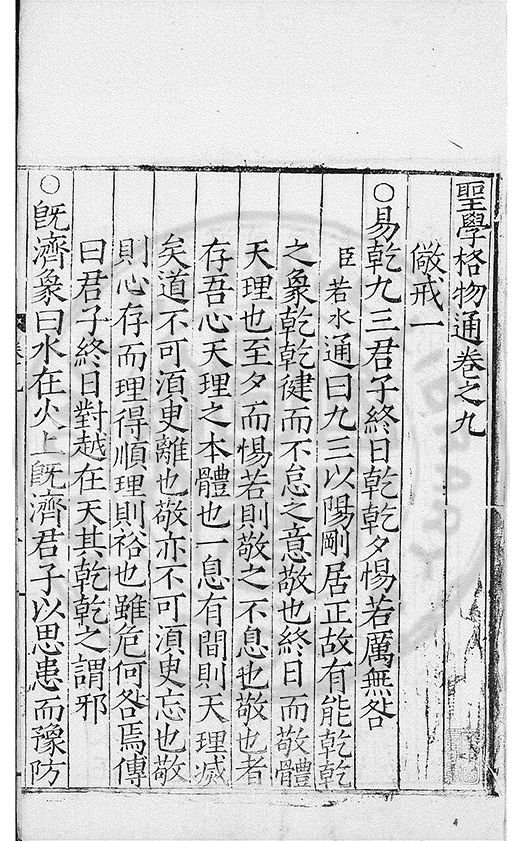 聖學格物通卷之九
儆戒一
○易乾九三君子終日乾乾夕惕若厲無咎
臣若水通曰九三以陽剛居正故有能乾乾
之象乾乾健而不怠之意敬也終日而敬體
天理也至夕而惕若則敬之不息也敬也者
存吾心天理之本體也一息有間則天理滅
矣道不可湏臾離也敬亦不可湏臾忘也敬
則心存而理得順理則裕也雖危何咎焉傳
曰君子終日對越在天其乾乾之謂邪
○旣濟象曰水在火上旣濟君子以思患而豫防